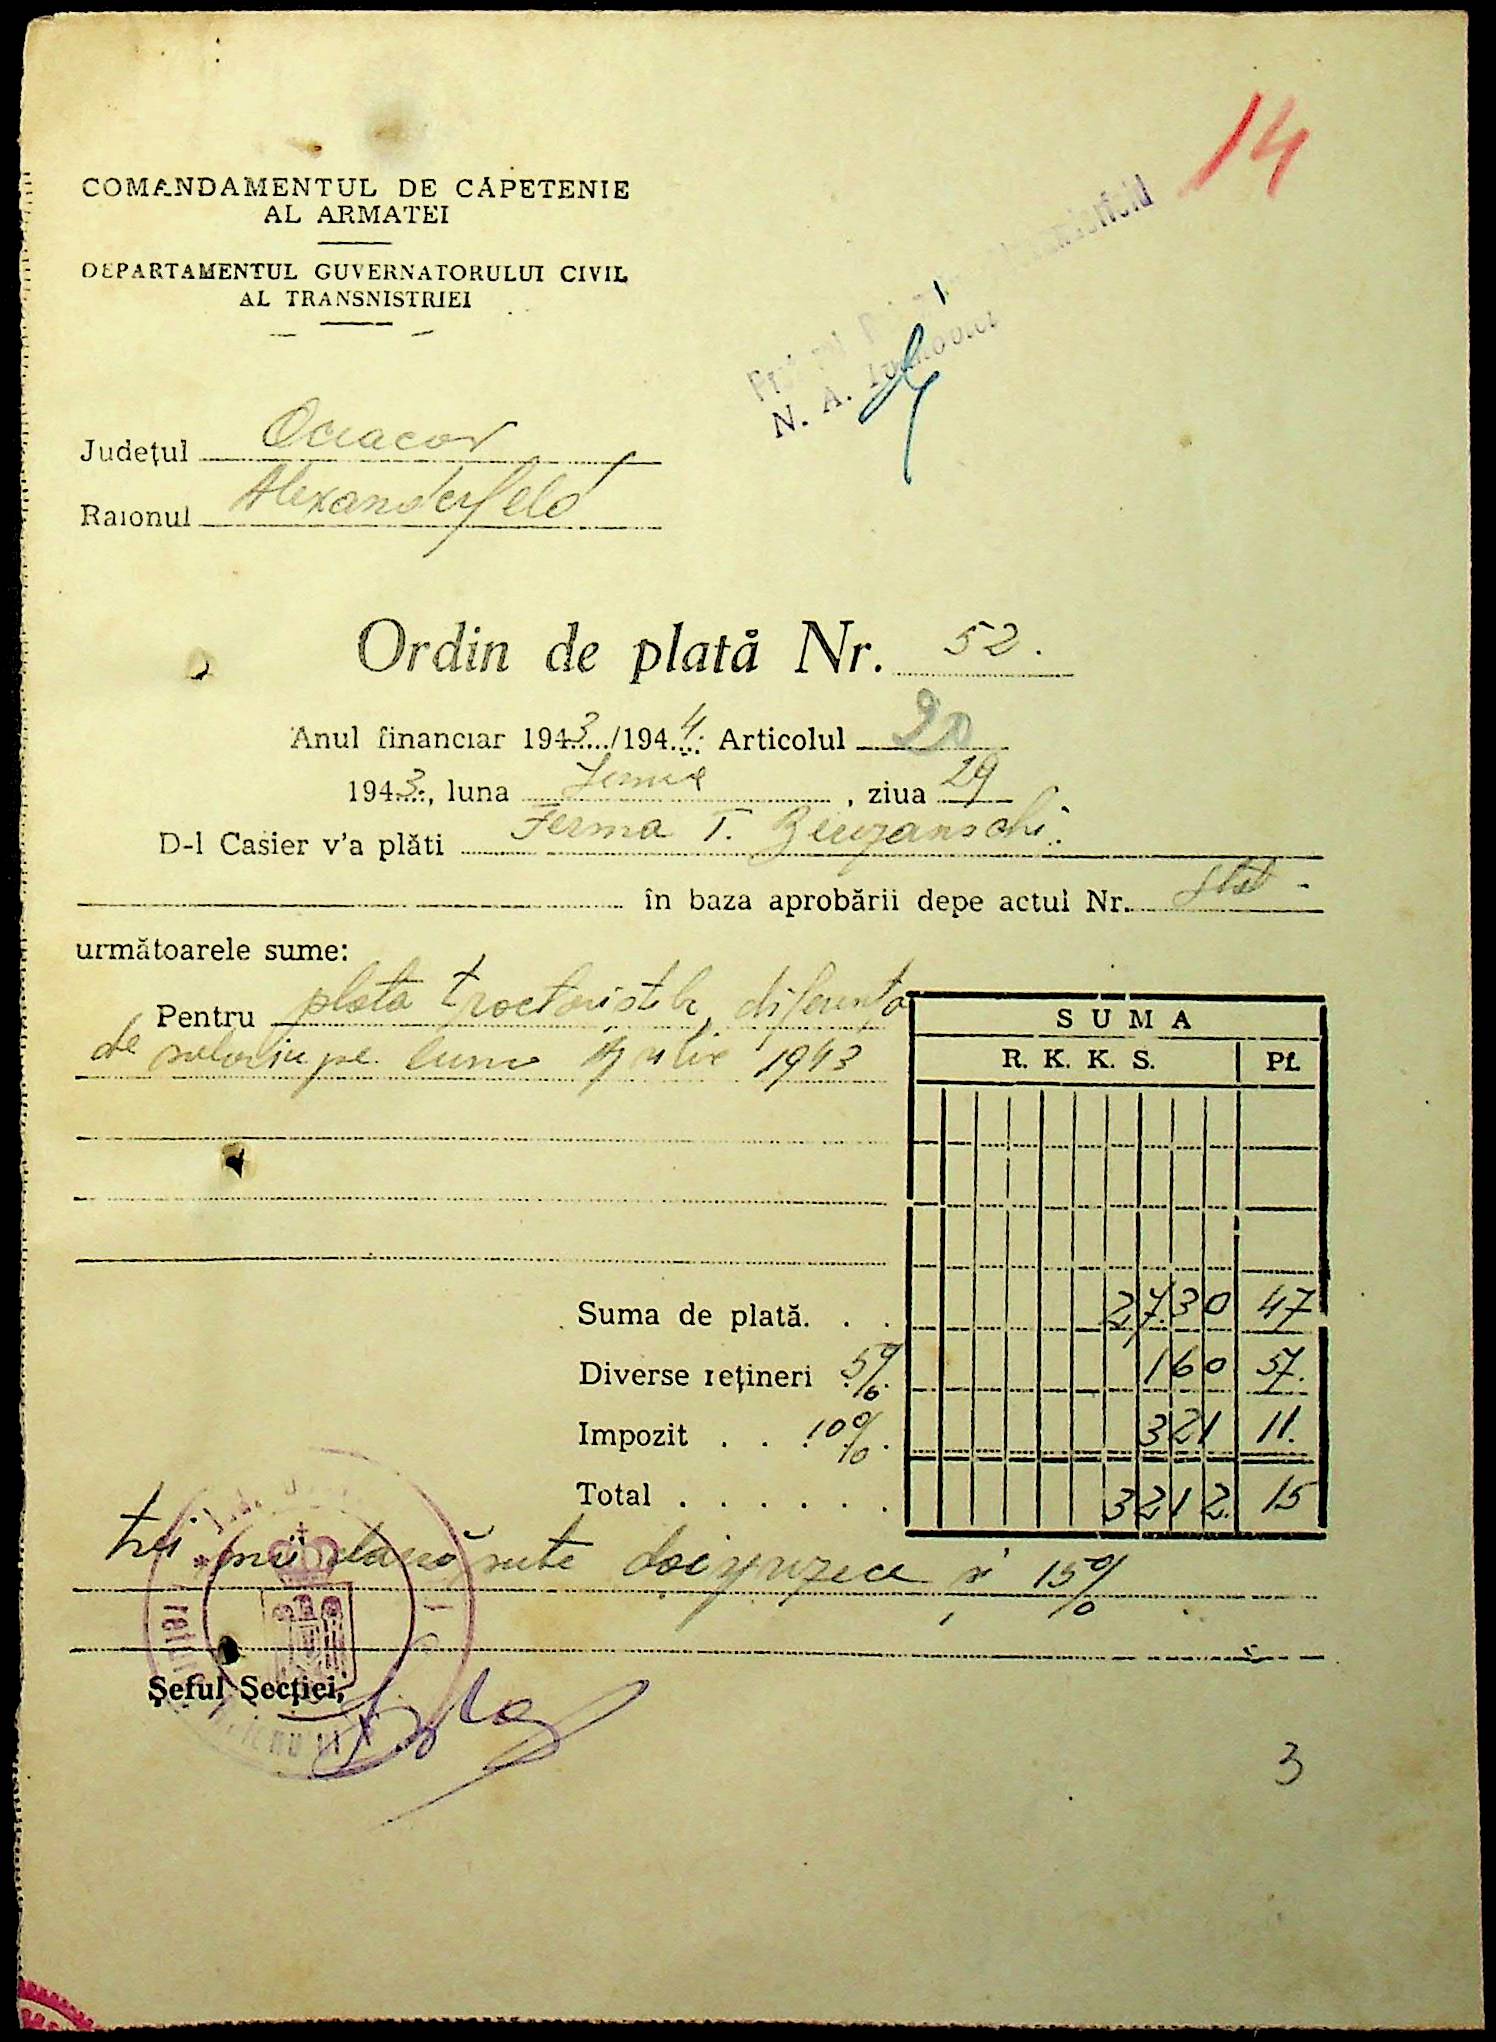 14
COMANDAMENTUL DE CĂPETENIE
AL ARMATEI
DEPARTAMENTUL GUVERNATORULUI CIVIL
AL TRANSNISTRIEI
N. A.
Județul Oceacov
Raionul Alexanderfeld
Ordin de plată Nr. 52.
Anul financiar 1943/1944 Articolul 20
1943, luna Iunie, ziua 29
D-l Casier v'a plăti Ferma T.
în baza aprobării depe actul Nr. Stat -
următoarele sume:
Pentru plata tractoristilor, diferența
de salariu pe luna Aprilie 1943
SUMA
R. K. K. S. Pf.
Suma de plată. . . 2730 47
Diverse rețineri 5% 160 57.
Impozit . . 10% 321 11.
Total . . . . . . 3212 15
trei mii două sute doisprezece și 15%
Șeful Secției,
3